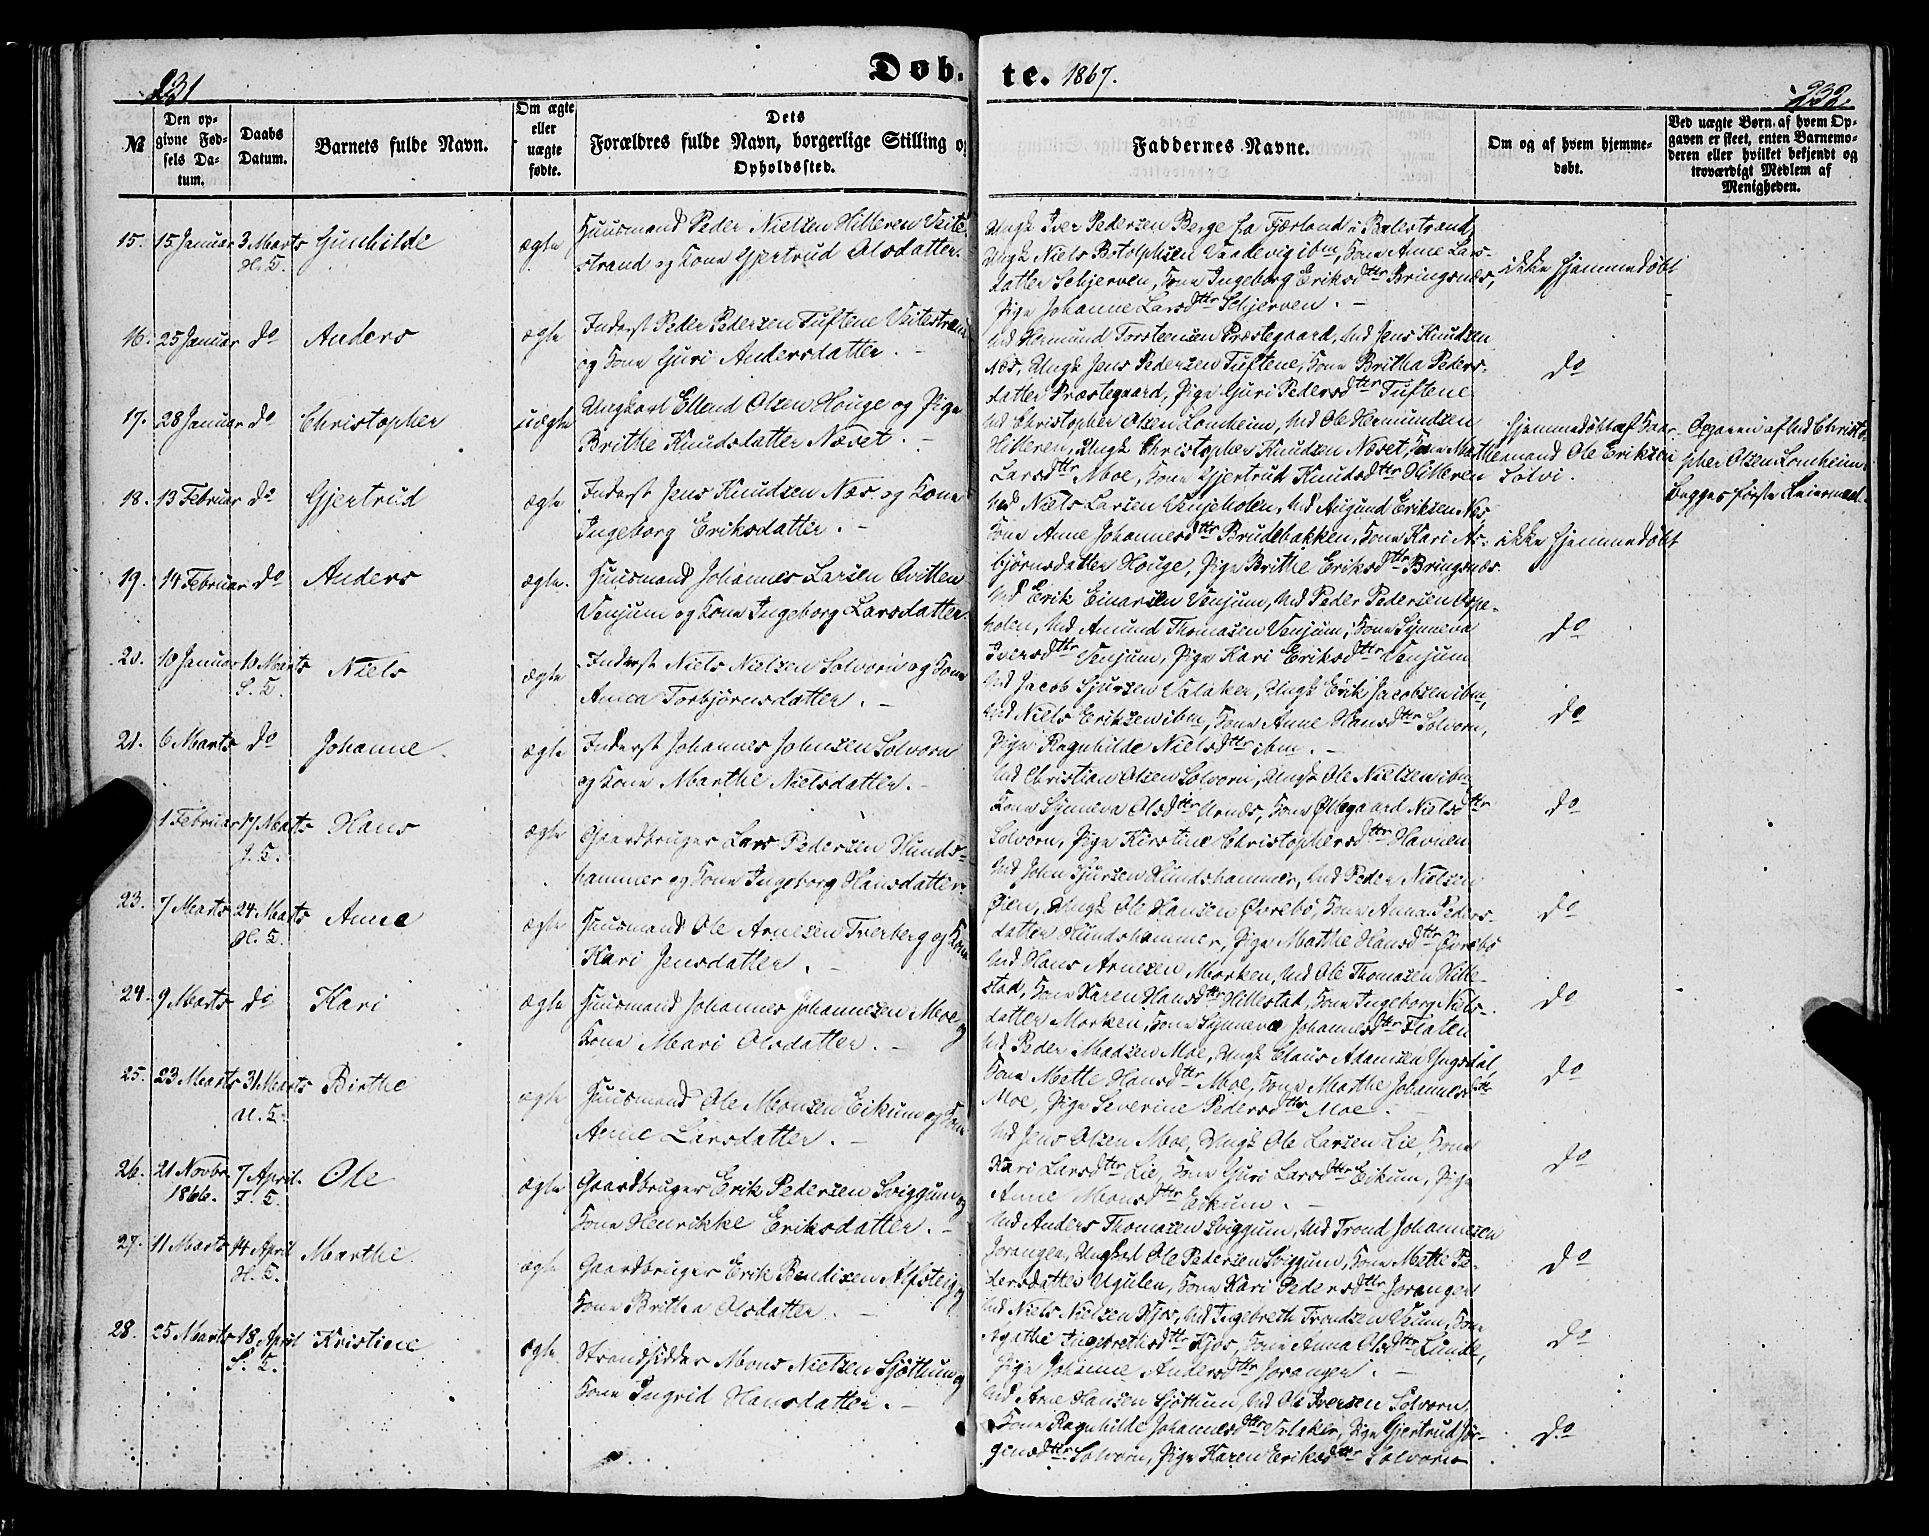 231
Døb-
te. 1867.
232.
№
Den op-
givne Fød-
sels Da-
tum.
Daabs
Datum.
Barnets fulde Navn.
Om ægte
eller
uægte
fødte.
Dets
Forældres fulde Navn, borgerlige Stilling og
Opholdssted.
Faddernes Navne.
Om og af hvem hjemme-
døbt.
Ved uægte Børn, af hvem Op-
gaven er skeet, enten Barnemo-
deren eller hvilket bekjendt og
troværdigt Medlem af
Menigheden.
15. 15 Januar 3 Marts Gunhilde ægte Huusmand Peder Nielsen Hilleren Veite-
H. T. strand og Kone Gjertrud Olsdatter.
Ungk Iver Pedersen Berge fra Fjærland i Balestrand,
Ungk Niels Botolphsen Vandevig ibm, Kone Anne Lars-
datter Schjerven, Kone Ingeborg Eriksdttr Bringsnæs,
Pige Johanne Larsdttr Schjerven. -
ikke hjemmedøbt
16. 25 Januar do Anders ægte Inderst Peder Pedersen Tuftene Veitestrand
og Kone Guri Andersdatter. -
Md Hermund Torsteensen Præstegaard, Md Jens Knudsen
Næs, Ungk Jens Pedersen Tuftene, Kone Britha Peders-
datter Præstegaard, Pige Guri Pedersdttr Tuftene
do
17. 28 Januar do Christopher uægte Ungkarl Ellend Olsen Houge og Pige
Brithe Knudsdatter Næset. -
Md Christopher Olsen Lomheim, Md Ole Hermundsen
Hilleren, Ungk Christopher Knudsen Næset, Kone Marthe
Larsdttr Moe, Kone Gjertrud Knudsdttr Hilleren
hjemmedøbt af Huus-
mand Ole Eriksen
Solvi.
Opgaven af Md Christo-
pher Olsen Lomheim.
Begges første Leiermaal.
18. 13 Februar do Gjertrud ægte Inderst Jens Knudsen Næs og Kone
Ingeborg Eriksdatter. -
Md Niels Larsen Venjeholen, Md Augund Eriksen Næs
Kone Anne Johannesdttr Brudebakken, Kone Kari As-
bjørnsdatter Houge, Pige Brithe Eriksdttr Bringsnæs.
ikke hjemmedøbt
19. 14 Februar do Anders ægte. Huusmand Johannes Larsen Qvitten
Venjum og Kone Ingeborg Larsdatter.
Md Erik Einarsen Venjum, Md Peder Pedersen Aspe-
holen, Md Amund Thomasen Venjum, Kone Synneva
Iversdttr Venjum, Pige Kari Eriksdttr Venjum
do
20. 10 Januar 10 Marts Niels ægte Inderst Niels Nielsen Solvorn og Kone
S. T. Anna Torbjørnsdatter. -
Md Jacob Sjursen Valaker, Ungk Erik Jacobsen ibm,
Md Niels Eriksen ibm, Kone Anne Hansdttr Solvorn,
Pige Ragnhilde Nielsdttr ibm. -
do
21. 6 Marts do Johanne ægte Inderst Johannes Johnsen Solvorn
og Kone Marthe Nielsdatter. -
Md Christian Olsen Solvorn, Ungk Ole Nielsen ibm,
Kone Synneva Olsdttr Urnes, Kone Oldegaard Nielsdttr
Solvorn, Pige Kirstine Christophersdttr Havnen
do
1 Februar 17 Marts Hans ægte Gaardbruger Lars Pedersen Hunds-
J. T. hammer og Kone Ingeborg Hansdatter.
Md John Sjursen Hundshammer, Md Peder Nielsen
Øien, Ungk Ole Hansen Øvrebø, Kone Anna Peders-
datter Hundshammer, Pige Marthe Hansdttr Øvrebø
do
23. 7 Marts 24 Marts Anna ægte Huusmand Ole Arnesen Tverberg og Kone
H. T. Kari Jensdatter. -
Md Hans Arnesen Morken, Md Ole Thomasen Hille-
stad, Kone Karen Hansdttr Hillestad, Kone Ingeborg Niels-
datter Morken, Kone Synneva Johannesdttr Flaten
do
24. 9 Marts do Kari ægte Huusmand Johannes Johannesen Moe og
Kone Mari Olsdatter. -
Md Peder Madsen Moe, Ungk Claus Adamsen Yngsdal,
Kone Mette Hansdttr Moe, Kone Marthe Johannesdttr
Moe, Pige Severine Pedersdttr Moe. -
do
25. 23 Marts 31 Marts Birthe ægte Huusmand Ole Monsen Eikum og Kone
M. T. Anne Larsdatter. -
Md Jens Olsen Moe, Ungk Ole Larsen Lie, Kone
Kari Larsdttr Lie, Kone Guri Larsdttr Eikum, Pige
Anne Monsdttr Eikum. -
do
26. 21 Novbr 7 April Ole ægte Gaardbruger Erik Pedersen Sviggum og
1866. F. T. Kone Henrikke Eriksdatter. -
Md Anders Thomasen Sviggum, Md Trond Johannesen
Joranger, Ungkarl Ole Pedersen Sviggum, Kone Mette Pe-
dersdatter Ugulen, Kone Kari Pedersdttr Joranger
do
27. 11 Marts 14 April Marthe ægte Gaardbruger Erik Bendixen Alsteig og
H. T. Kone Britha Olsdatter. -
Md Niels Nielsen Kjos, Md Ingebreth Trondsen Veum, Kone
Agathe Ingebrethsdttr Kjos, Kone Anna Olsdttr Linde,
Pige Johanne Andersdttr Joranger. -
do
28. 25 Marts 18 April Kristine ægte Strandsidder Mons Nielsen Sjøttum og
S. T. Kone Ingrid Hansdatter. -
Md Arne Hansen Sjøttum, Md Ole Iversen Solvorn,
Kone Ragnhilde Johannesdttr Valaker, Pige Gjertrud Jør-
gensdttr Solvorn, Pige Karen Eriksdttr Solvorn
do